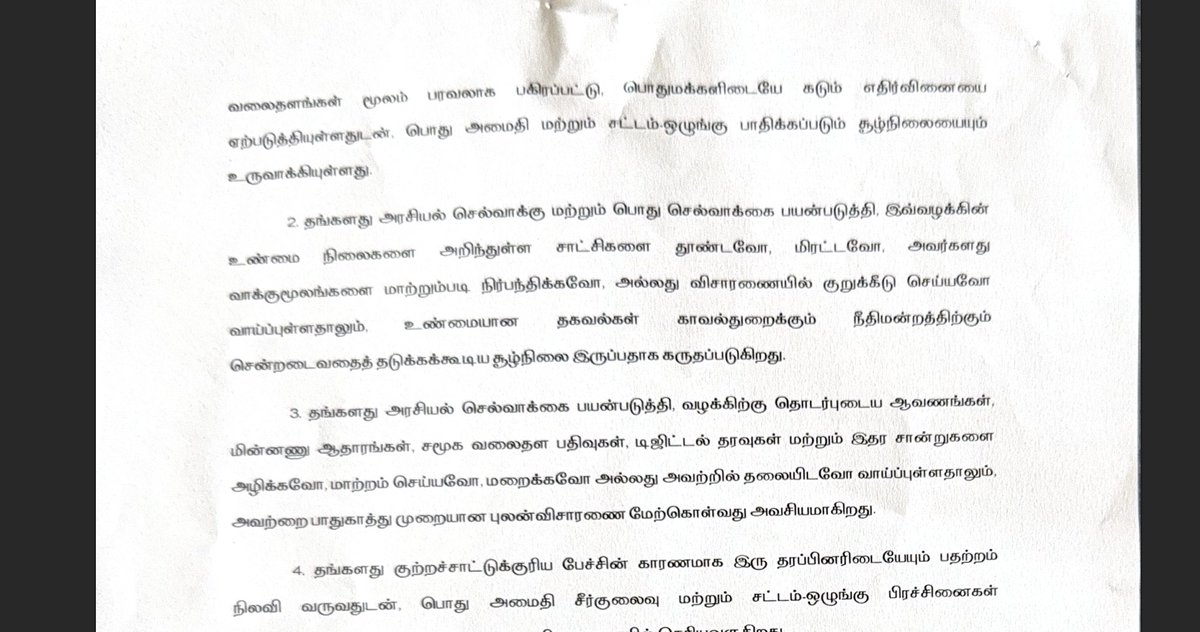 வலைதளங்கள் மூலம் பரவலாக பகிரப்பட்டு, பொதுமக்களிடையே கடும் எதிர்வினையை
ஏற்படுத்தியுள்ளதுடன், பொது அமைதி மற்றும் சட்டம்-ஒழுங்கு பாதிக்கப்படும் சூழ்நிலையையும்
உருவாக்கியுள்ளது.
2. தங்களது அரசியல் செல்வாக்கு மற்றும் பொது செல்வாக்கை பயன்படுத்தி, இவ்வழக்கின்
உண்மை நிலைகளை அறிந்துள்ள சாட்சிகளை தூண்டவோ, மிரட்டவோ, அவர்களது
வாக்குமூலங்களை மாற்றும்படி நிர்பந்திக்கவோ, அல்லது விசாரணையில் குறுக்கீடு செய்யவோ
வாய்ப்புள்ளதாலும், உண்மையான தகவல்கள் காவல்துறைக்கும் நீதிமன்றத்திற்கும்
சென்றடைவதைத் தடுக்கக்கூடிய சூழ்நிலை இருப்பதாக கருதப்படுகிறது.
3. தங்களது அரசியல் செல்வாக்கை பயன்படுத்தி, வழக்கிற்கு தொடர்புடைய ஆவணங்கள்,
மின்னணு ஆதாரங்கள், சமூக வலைதள பதிவுகள், டிஜிட்டல் தரவுகள் மற்றும் இதர சான்றுகளை
அழிக்கவோ, மாற்றம் செய்யவோ, மறைக்கவோ அல்லது அவற்றில் தலையிடவோ வாய்ப்புள்ளதாலும்,
அவற்றை பாதுகாத்து முறையான புலன்விசாரணை மேற்கொள்வது அவசியமாகிறது.
4. தங்களது குற்றச்சாட்டுக்குரிய பேச்சின் காரணமாக இரு தரப்பினரிடையேயும் பதற்றம்
நிலவி வருவதுடன், பொது அமைதி சீர்குலைவு மற்றும் சட்டம்-ஒழுங்கு பிரச்சினைகள்